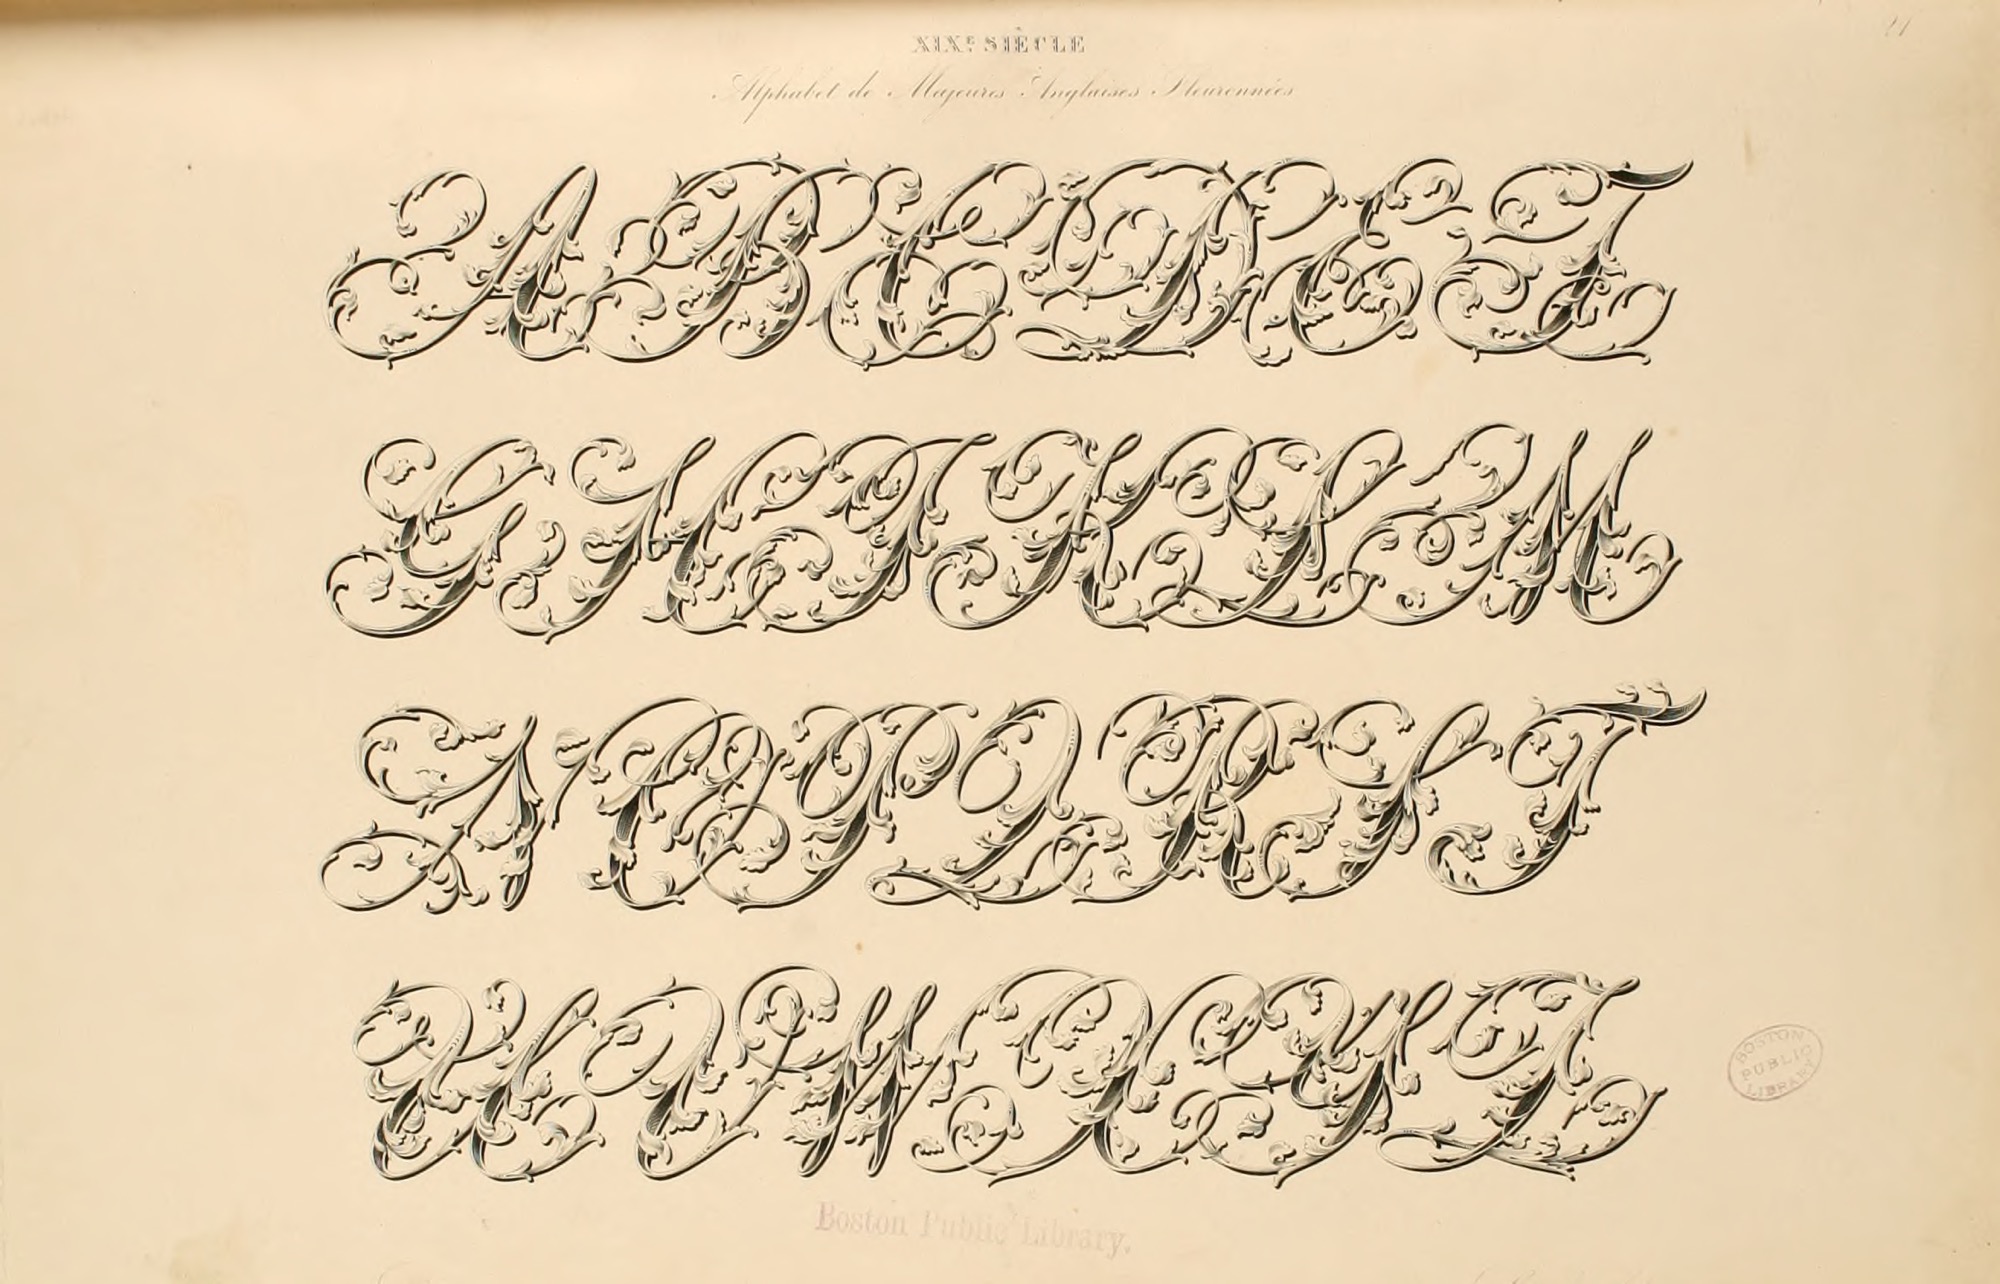 XIXᵉ SIÈCLE
21
Alphabet de Majeures Anglaises Fleuronnées
A B C D E F
G H I K L M
N O P Q R S T
U V W X Y Z
BOSTON
PUBLIC
LIBRARY
Boston Public Library.